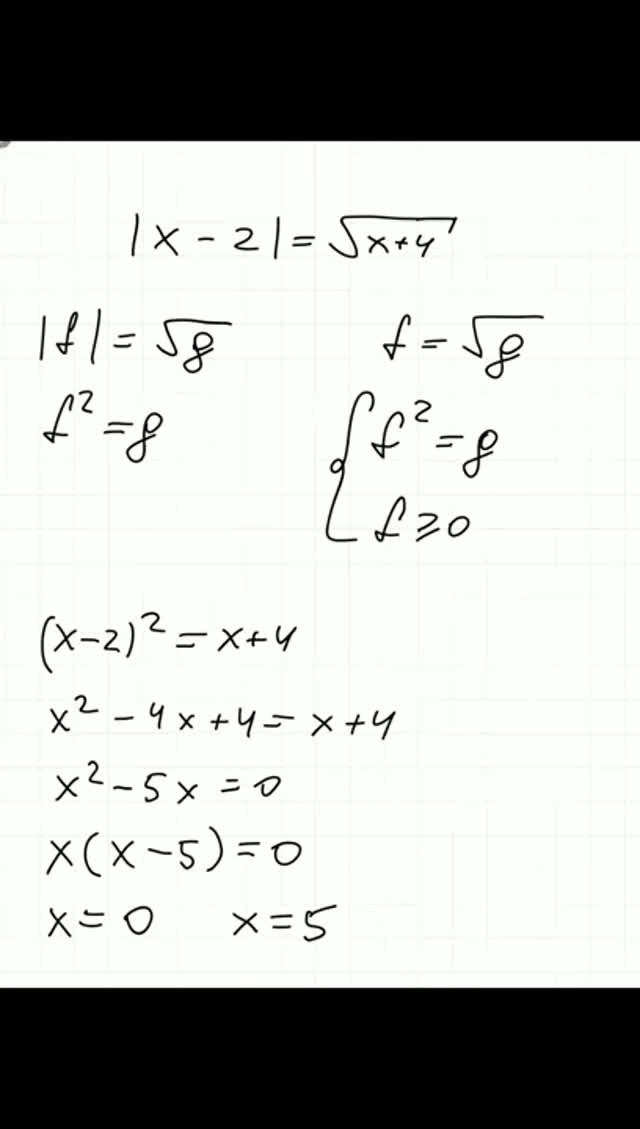 |x - 2| = √(x+4)
|f| = √g f = √g
f² = g { f² = g
f ⩾ 0
(x-2)² = x+4
x² - 4x + 4 = x + 4
x² - 5x = 0
x(x-5) = 0
x = 0 x = 5